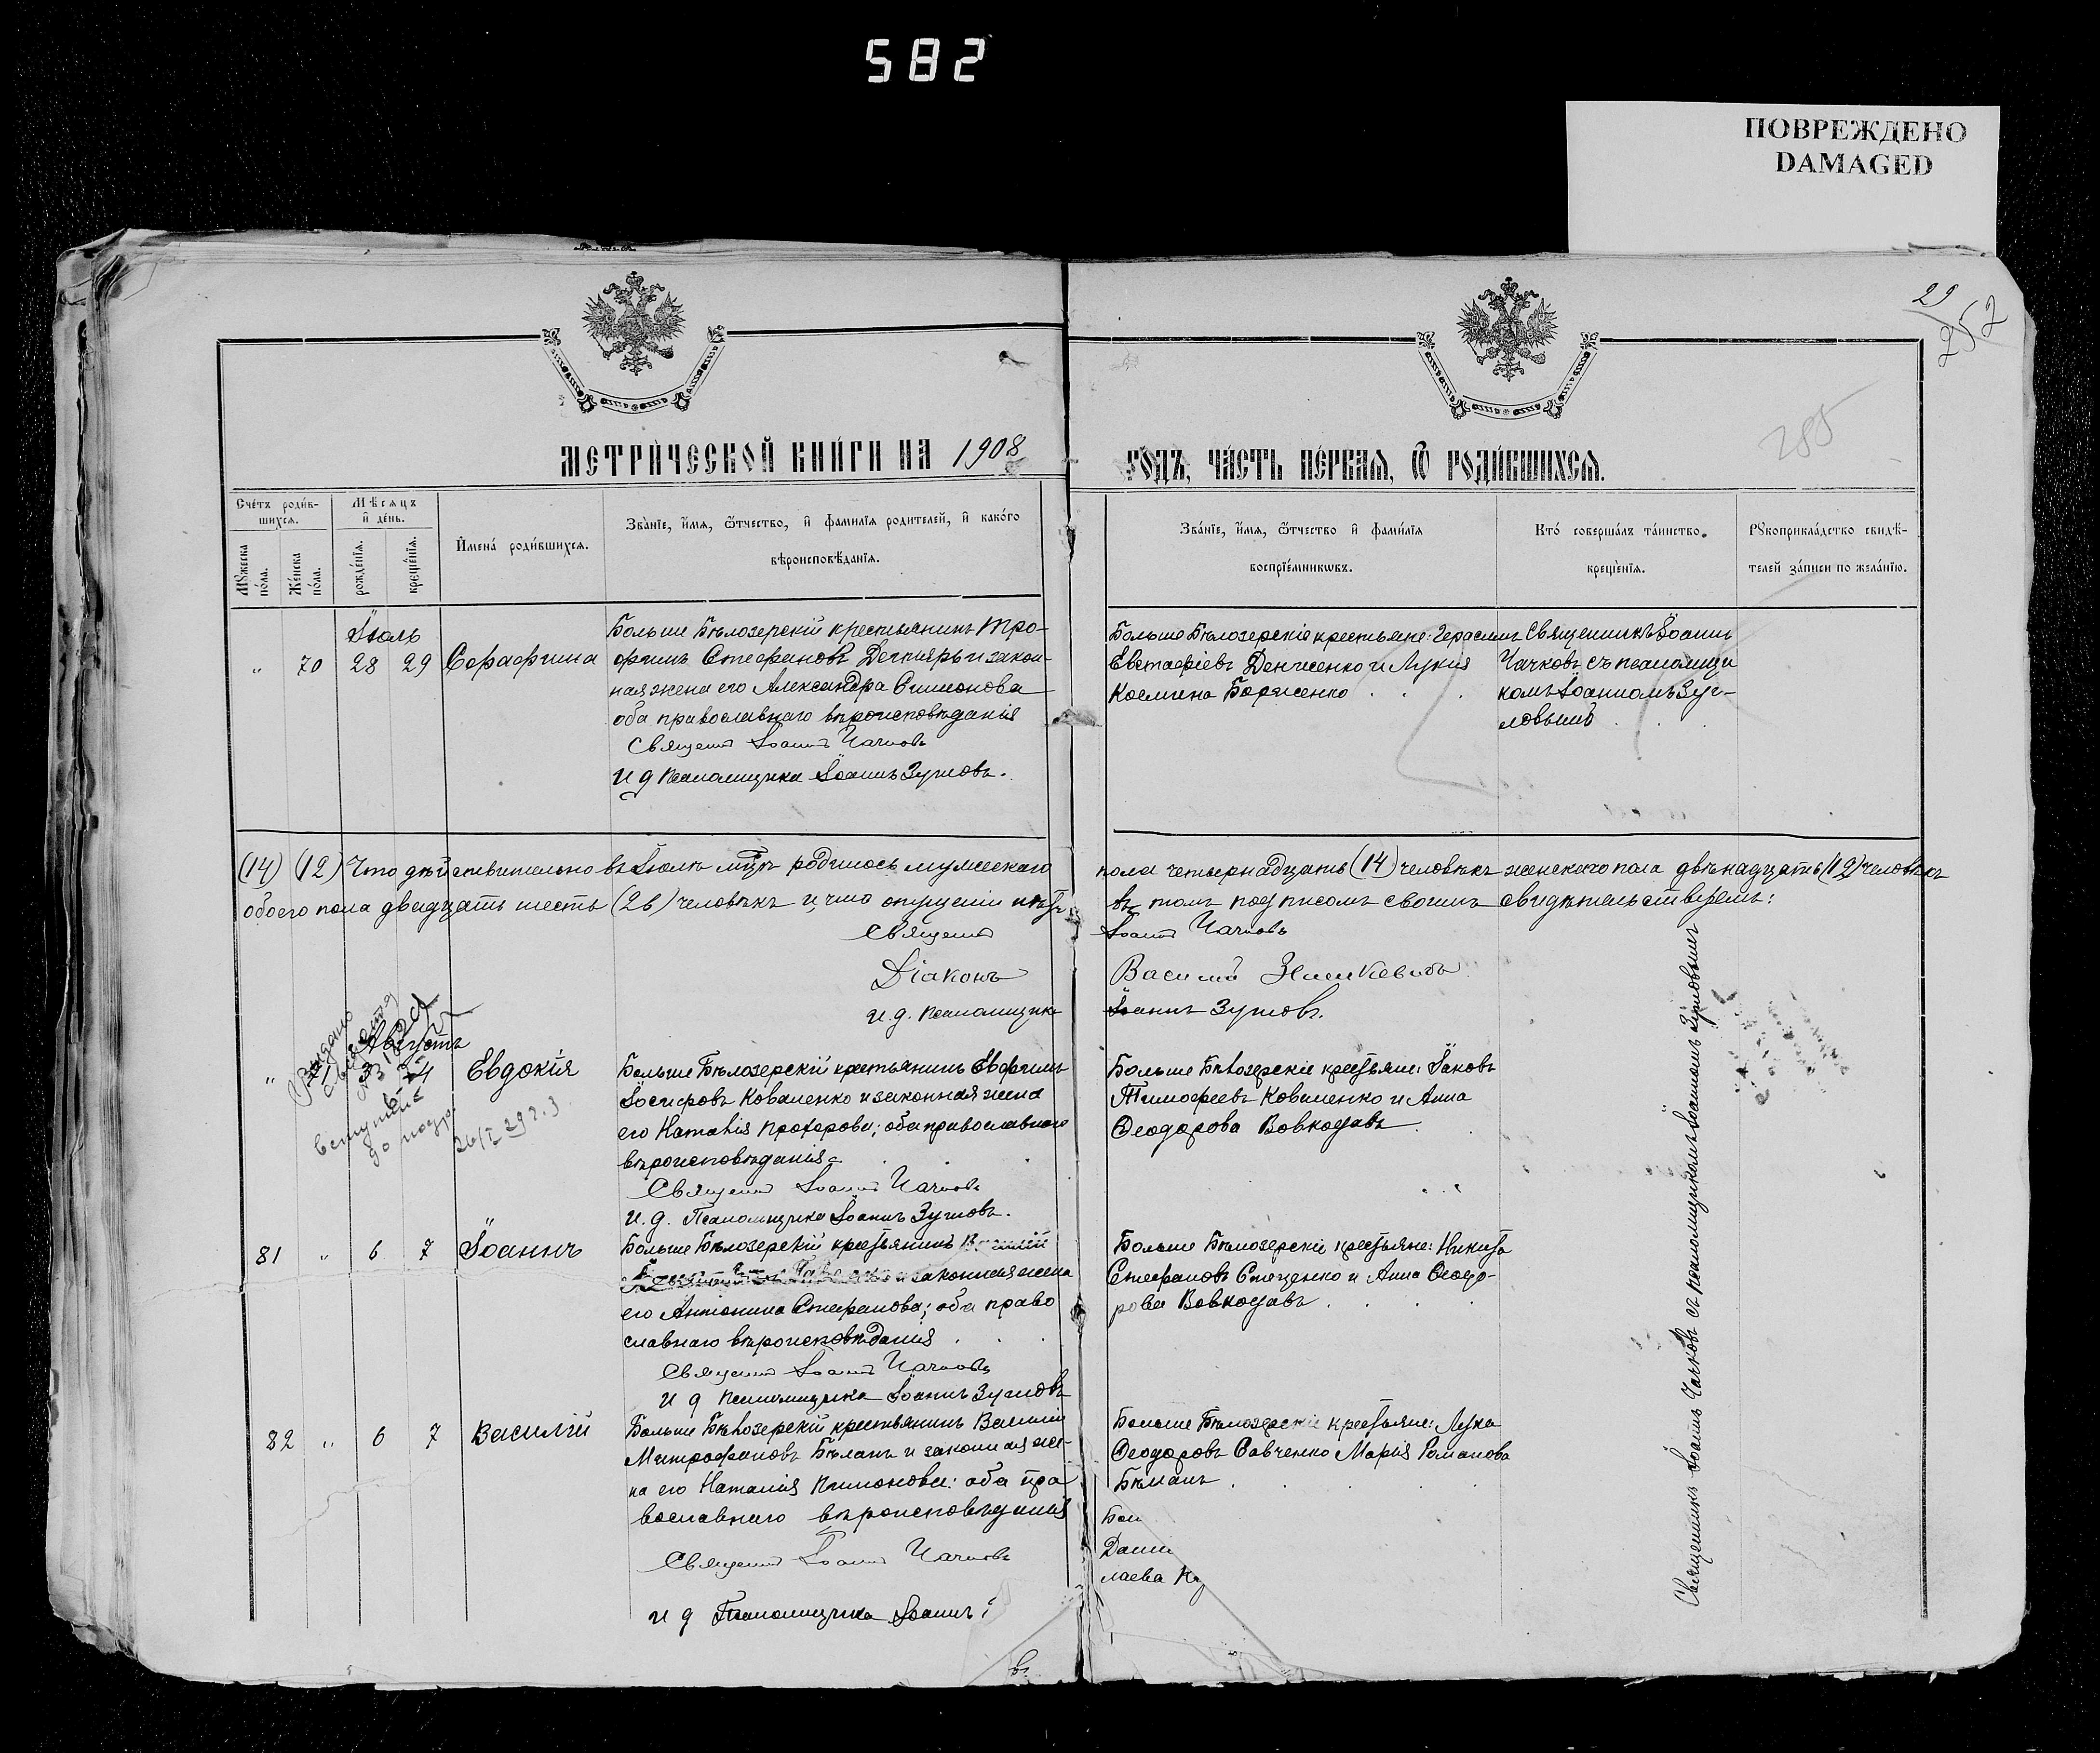 582
ПОВРЕЖДЕНО
DAMAGED
29
252
285
МЕТРИ́ЧЕСКОЙ КНИ́ГИ НА 1908
ГО́ДЪ, ЧА́СТЬ ПЕ́РВАЯ, Ѿ РОДИ́ВШИХСЯ.
Сче́тъ роди́в-
шихся.
Мѣ́сяцъ
и̂ де́нь.
Мꙋжеска
по́ла.
Же́нска
по́ла.
рожде́нїя.
креще́нїя.
И̂мена́ роди́вшихся.
Зва́нїе, и̂мя, ѿтчество, и̂ фами́лїя родителей, и̂ како́го
вѣроисповѣ́данїя.
Зва́нїе, и̂мя, ѿтчество и̂ фами́лїя
воспрїе́мникѡвъ.
Кто́ соверша́лъ та́инство
креще́нїя.
Рꙋкоприкла́дство свидѣ́-
телей за́писи по жела́нїю.
Іюль
" 70 28 29 Серафима
Больше Бѣлозерскій крестьянинъ Тро-
фимъ Стефановъ Дегтярь и закон-
ная жена его Александра Симонова
оба православнаго вѣроисповѣданія
Священ Іоаннъ Чачковъ
И д псаломщика Іоаннъ Зумовъ.
Больше Бѣлозерскіе крестьяне: Герасимъ
Евстафіевъ Денисенко и Лукія
Космина Борисенко
Священникъ Іоаннъ
Чачковъ съ псаломщи
комъ Іоанномъ
ловымъ
(14) (12) Что дѣйствительно въ Іюлѣ мцѣ родилось мужескаго
обоего пола двадцать шесть (26) человѣкъ и, что опущеній нѣтъ
пола четырнадцать (14) человѣкъ женскаго пола двѣнадцать (12) человѣкъ
въ томъ подписомъ своимъ свидѣтельствуемъ:
Священ Іоаннъ Чачковъ
Діаконъ Василій
И.д. псаломщика Іоаннъ Зумовъ.
Августъ
" 3 4 Евдокія
Больше Бѣлозерскій крестьянинъ Евфимъ
Іосифовъ Коваленко и законная жена
его Наталія Прохорова; оба православнаго
вѣроисповѣданія
Священ Іоаннъ Чачковъ
И.д. Псаломщика Іоаннъ Зумовъ.
Больше Бѣлозерскіе крестьяне: Іаковъ
Тимофеевъ Коваленко и Анна
Ѳеодорова Вовкодавъ
81 " 6 7 Іоаннъ
Больше Бѣлозерскій крестьянинъ Василій
и законная жена
его Антонина Стефанова; оба право
славнаго вѣроисповѣданія
Священ Іоаннъ Чачковъ
И д псаломщика Іоаннъ Зумовъ
Больше Бѣлозерскіе крестьяне: Никита
Стефановъ Стеценко и Анна Ѳеодо-
рова Вовкодавъ
82 " 6 7 Василій
Больше Бѣлозерскій крестьянинъ Василій
Митрофановъ Бѣланъ и законная же-
на его Наталія Климонова: оба пра
вославнаго вѣроисповѣданія
Священ Іоаннъ Чачковъ
И д Псаломщика Іоаннъ
Больше Бѣлозерскіе крестьяне: Лука
Ѳеодоровъ Савченко Марія Романова
Бѣланъ
Бол
Дани
лаева
Священникъ Іоаннъ Чачковъ съ псаломщикомъ Іоанномъ